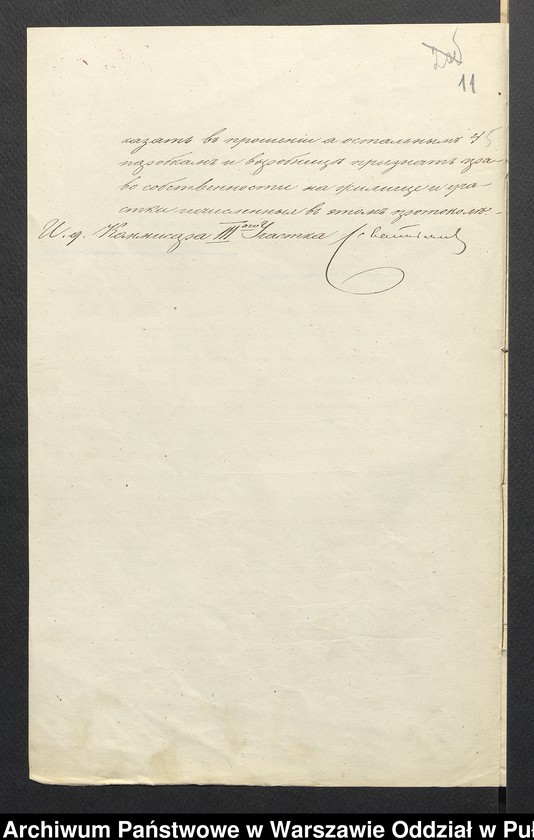 11
казать въ прошеніи а остальнымъ 45
паробкамъ и выробницѣ признать пра-
во собственности на жилище и уча-
стки исчисленныя въ этомъ протоколѣ -
И. д. Коммисара III го Участка
Archiwum Państwowe w Warszawie Oddział w Puł